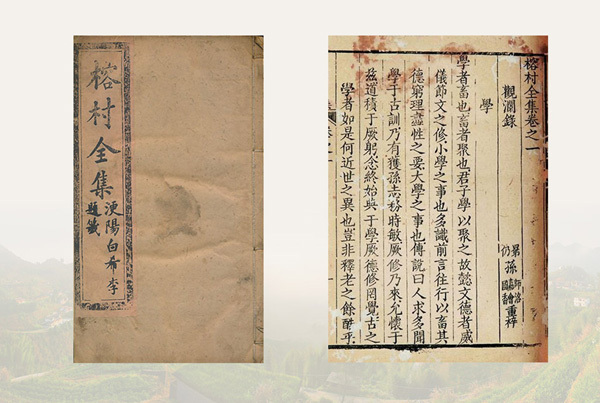 榕村全集
浭陽白希李
題籤
榕村全集卷之一
觀瀾錄
孫
重梓
學
學者畜也畜者聚也君子學以聚之故懿文德者威
儀節文之修小學之事也多識前言往行以畜其
德窮理盡性之要大學之事也傅說曰人求多聞
學于古訓乃有獲孫志務時敏厥修乃來允懷于
茲道積于厥躬念終始典于學厥德修罔覺古之
學者如是何近世之異也豈非釋老之餘酷乎